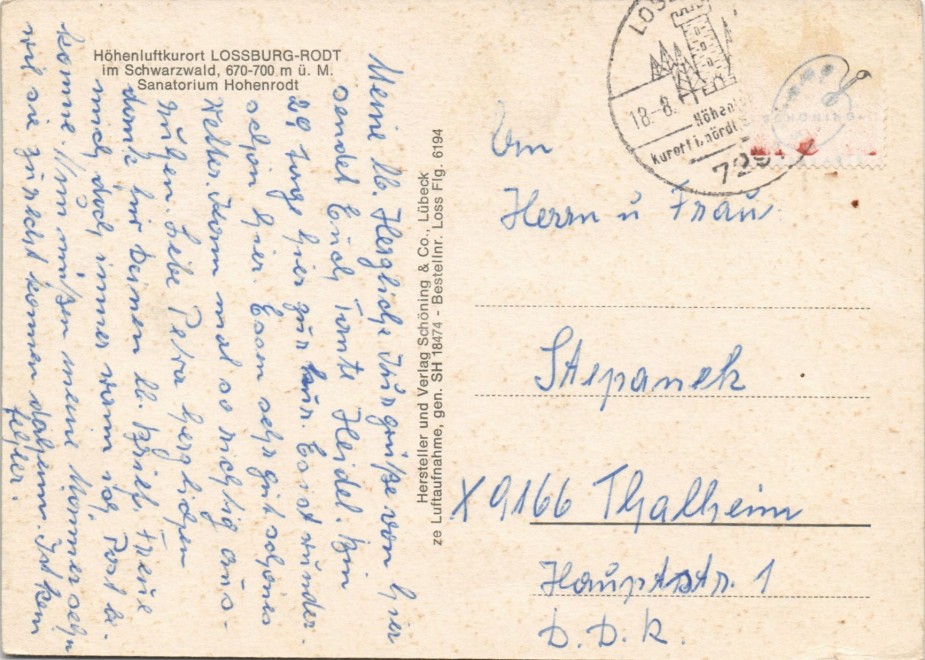 Höhenluftkurort LOSSBURG-RODT
im Schwarzwald, 670-700 m ü. M.
Sanatorium Hohenrodt
Meine lb. Herzliche Kurgrüße von hier
sendet Euch Tante Heidel. Bin
20 Tage hier zur Kur. Es ist wunder-
schön hier. Essen sehr gut schönes
Wetter. Kann mal so richtig aus-
ruhen. Liebe Petra herzlichen
dank für Deinen lb. Brief. Freue
mich doch immer wenn ich Post be-
komme. Nun müßen meine Männer sehn
wie sie zurecht komen daheim. Ist kein
Fehler.
Hersteller und Verlag Schöning & Co., Lübeck
ze Luftaufnahme, gen. SH 18474 - Bestellnr. Loss Flg. 6194
LOSS
18.-8.
Höhen
Kurort i. nördl. S
729
An
Herrn u Frau
Stepanek
X 9166 Thalheim
Hauptstr. 1
D. D. R.